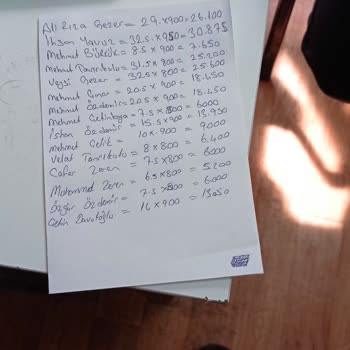 Ali Rıza Gezer = 29.×900 = 26.100
İhsan Yavuz = 32.5.×950 = 30.875
Mehmet = 8.5 × 900 = 7.650
Mehmet Tanrıkulu = 31.5 × 800 = 25.200
Veysi Gezer = 32.5 × 800 = 25.600
Mehmet = 20.5 × 900 = 18.450
Mehmet Özdemir = 20.5 × 900 = 18.450
Mehmet = 7.5 × 800 = 6000
İshan Özdemir = 15.5 × 900 = 13.950
Mehmet Çelik = 10 × 900 = 9000
Velat Tanrıkulu = 8 × 800 = 6.400
Cafer Zeren = 7.5 × 800 = 6000
Muhammed Zeren = 6.5 × 800 = 5.200
Özgür Özdemir = 7.5 × 800 = 6.000
Çetin = × 900 =